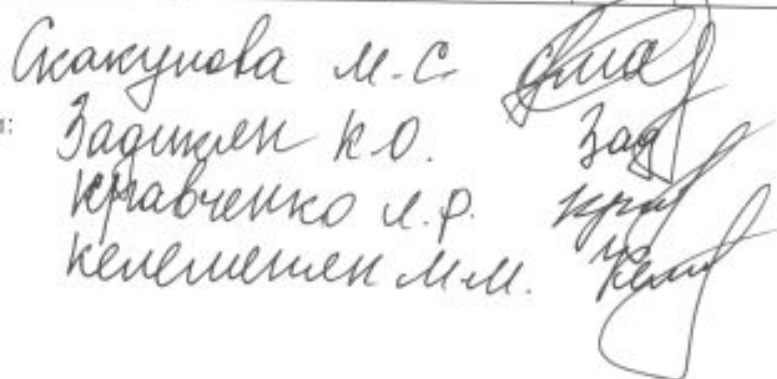 Скакунова М.С.
Задикян К.О. Зад
Кравченко Л.Р. Крав
Келешиян М.М. Келе